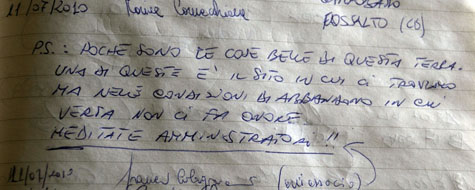 11/07/2010
BOSALTO (CB)
P.S.: POCHE SONO LE COSE BELLE DI QUESTA TERRA.
UNA DI QUESTE E' IL SITO IN CUI CI TROVIAMO
MA NELLE CONDIZIONI DI ABBANDONO IN CUI
VERSA NON CI FA ONORE.
MEDITATE AMMINISTRATORI!!
(mi associo)